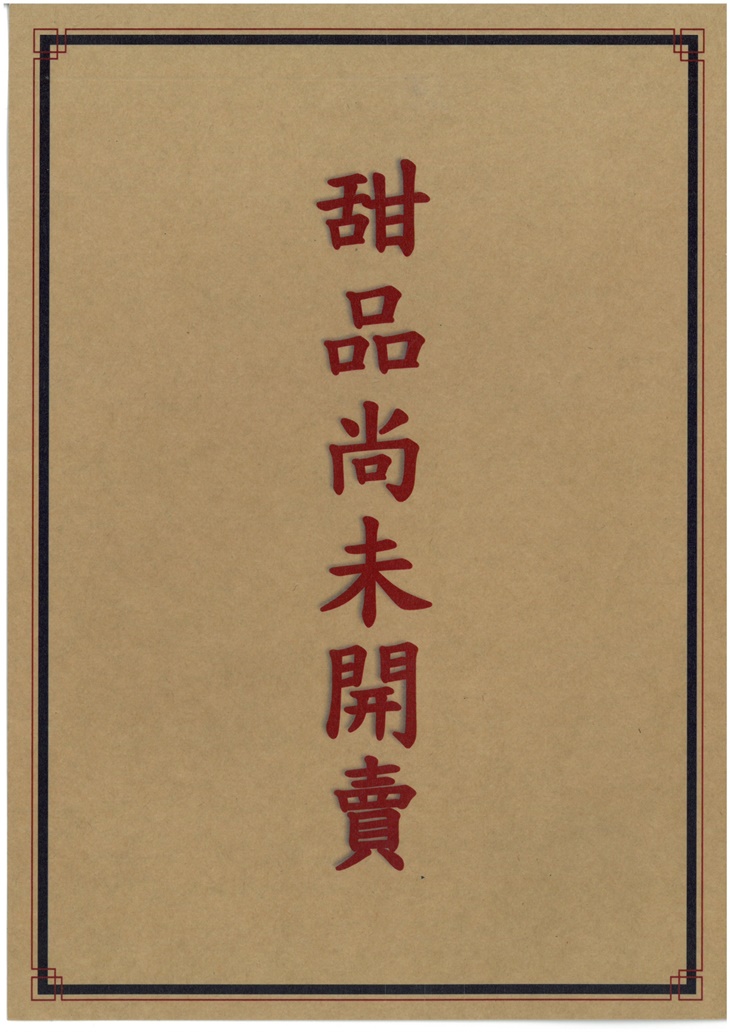 甜品尚未開賣